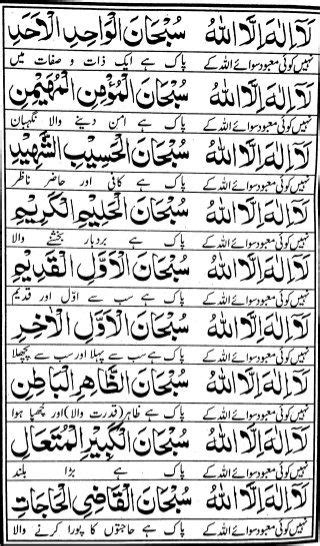 لَآ اِلٰهَ اِلَّا اللّٰهُ سُبْحَانَ الْوَاحِدِ الْاَحَدِ
نہیں کوئی معبود سوائے اللہ کے پاک ہے ایک ذات و صفات میں
لَآ اِلٰهَ اِلَّا اللّٰهُ سُبْحَانَ الْمُؤْمِنِ الْمُهَيْمِنِ
نہیں کوئی معبود سوائے اللہ کے پاک ہے امن دینے والا نگہبان
لَآ اِلٰهَ اِلَّا اللّٰهُ سُبْحَانَ الْحَسِيْبِ الشَّهِيْدِ
نہیں کوئی معبود سوائے اللہ کے پاک ہے کافی اور حاضر ناظر
لَآ اِلٰهَ اِلَّا اللّٰهُ سُبْحَانَ الْحَلِيْمِ الْكَرِيْمِ
نہیں کوئی معبود سوائے اللہ کے پاک ہے بردبار بخشنے والا
لَآ اِلٰهَ اِلَّا اللّٰهُ سُبْحَانَ الْاَوَّلِ الْقَدِيْمِ
نہیں کوئی معبود سوائے اللہ کے پاک ہے سب سے اوّل اور قدیم
لَآ اِلٰهَ اِلَّا اللّٰهُ سُبْحَانَ الْاَوَّلِ الْاٰخِرِ
نہیں کوئی معبود سوائے اللہ کے پاک ہے سب سے پہلا اور سب سے پچھلا
لَآ اِلٰهَ اِلَّا اللّٰهُ سُبْحَانَ الظَّاهِرِ الْبَاطِنِ
نہیں کوئی معبود سوائے اللہ کے پاک ہے ظاہر (قدرت والا) اور چھپا ہوا
لَآ اِلٰهَ اِلَّا اللّٰهُ سُبْحَانَ الْكَبِيْرِ الْمُتَعَالِ
نہیں کوئی معبود سوائے اللہ کے پاک ہے بڑا بلند
لَآ اِلٰهَ اِلَّا اللّٰهُ سُبْحَانَ الْقَاضِي الْحَاجَاتِ
نہیں کوئی معبود سوائے اللہ کے پاک ہے حاجتوں کا پورا کرنے والا